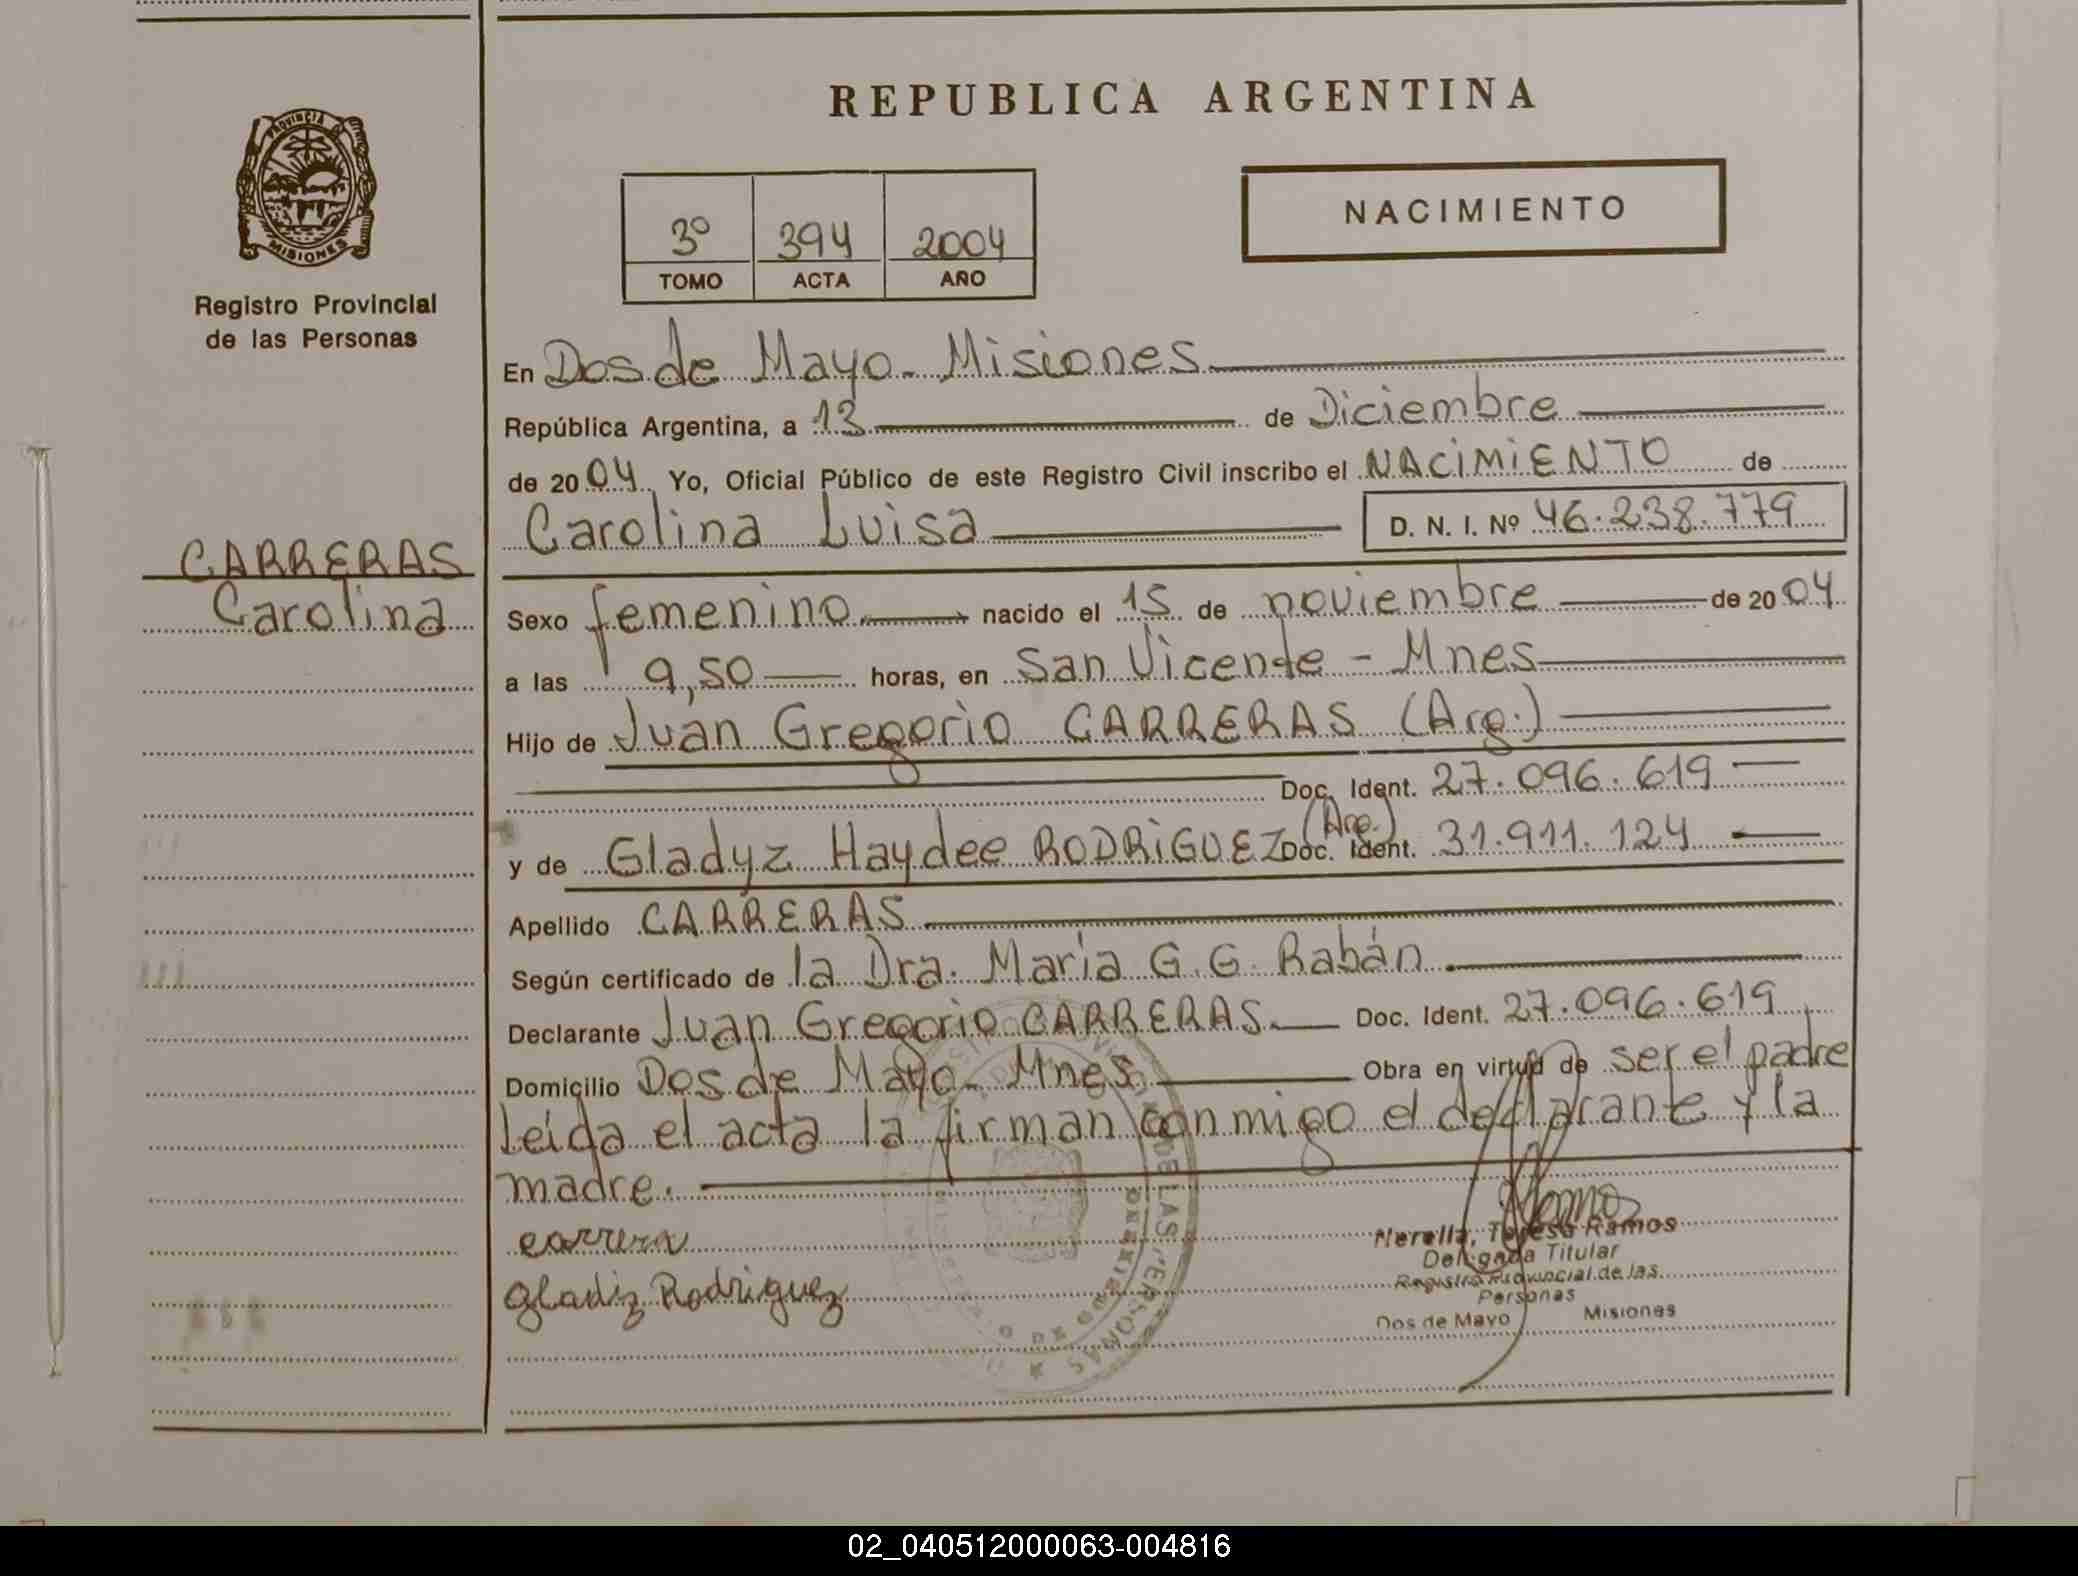 REPUBLICA ARGENTINA
PROVINCIA DE MISIONES
Registro Provincial
de las Personas
3º 394 2004
TOMO ACTA AÑO
NACIMIENTO
En Dos de Mayo - Misiones
República Argentina, a 13 de Diciembre
de 2004 Yo, Oficial Público de este Registro Civil inscribo el NACIMIENTO de
Carolina Luisa D. N. I. Nº 46.238.779
CARRERAS
Carolina
Sexo femenino nacido el 15 de noviembre de 2004
a las 9,50 horas, en San Vicente - Mnes
Hijo de Juan Gregorio CARRERAS (Arg.)
Doc. Ident. 27.096.619
y de Gladyz Haydee RODRIGUEZ (Arg.) Doc. Ident. 31.911.124
Apellido CARRERAS
Según certificado de la Dra. Maria G. G. Rabán
Declarante Juan Gregorio CARRERAS Doc. Ident. 27.096.619
Domicilio Dos de Mayo - Mnes Obra en virtud de ser el padre
Leída el acta la firman conmigo el declarante y la
madre.
carrera
gladiz Rodriguez
Nerella, Teresa Ramos
Delegada Titular
Registro Provincial de las
Personas
Dos de Mayo Misiones
DE LAS PERSONAS
02_040512000063-004816